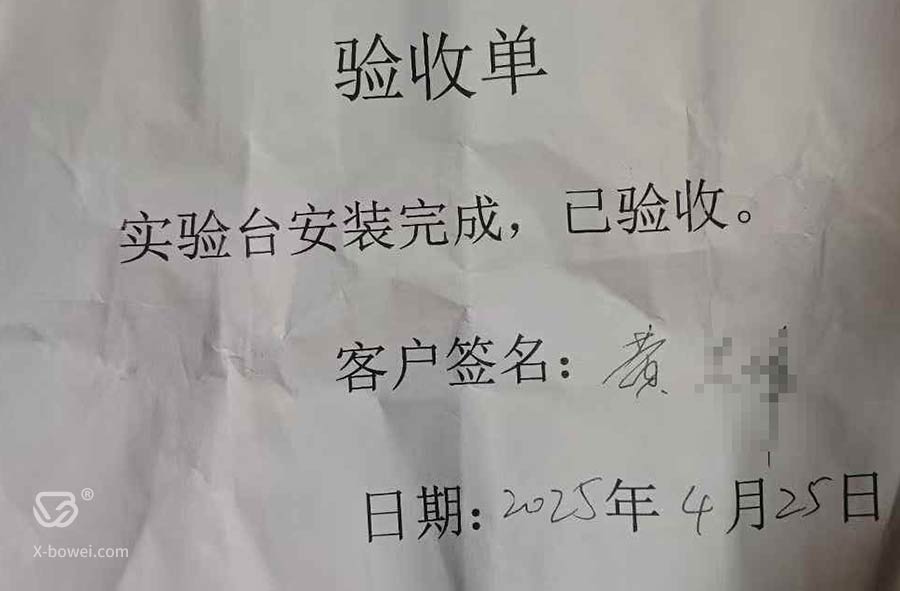 验收单
实验台安装完成，已验收。
客户签名：黄
日期：2025年4月25日
®
X-bowei.com